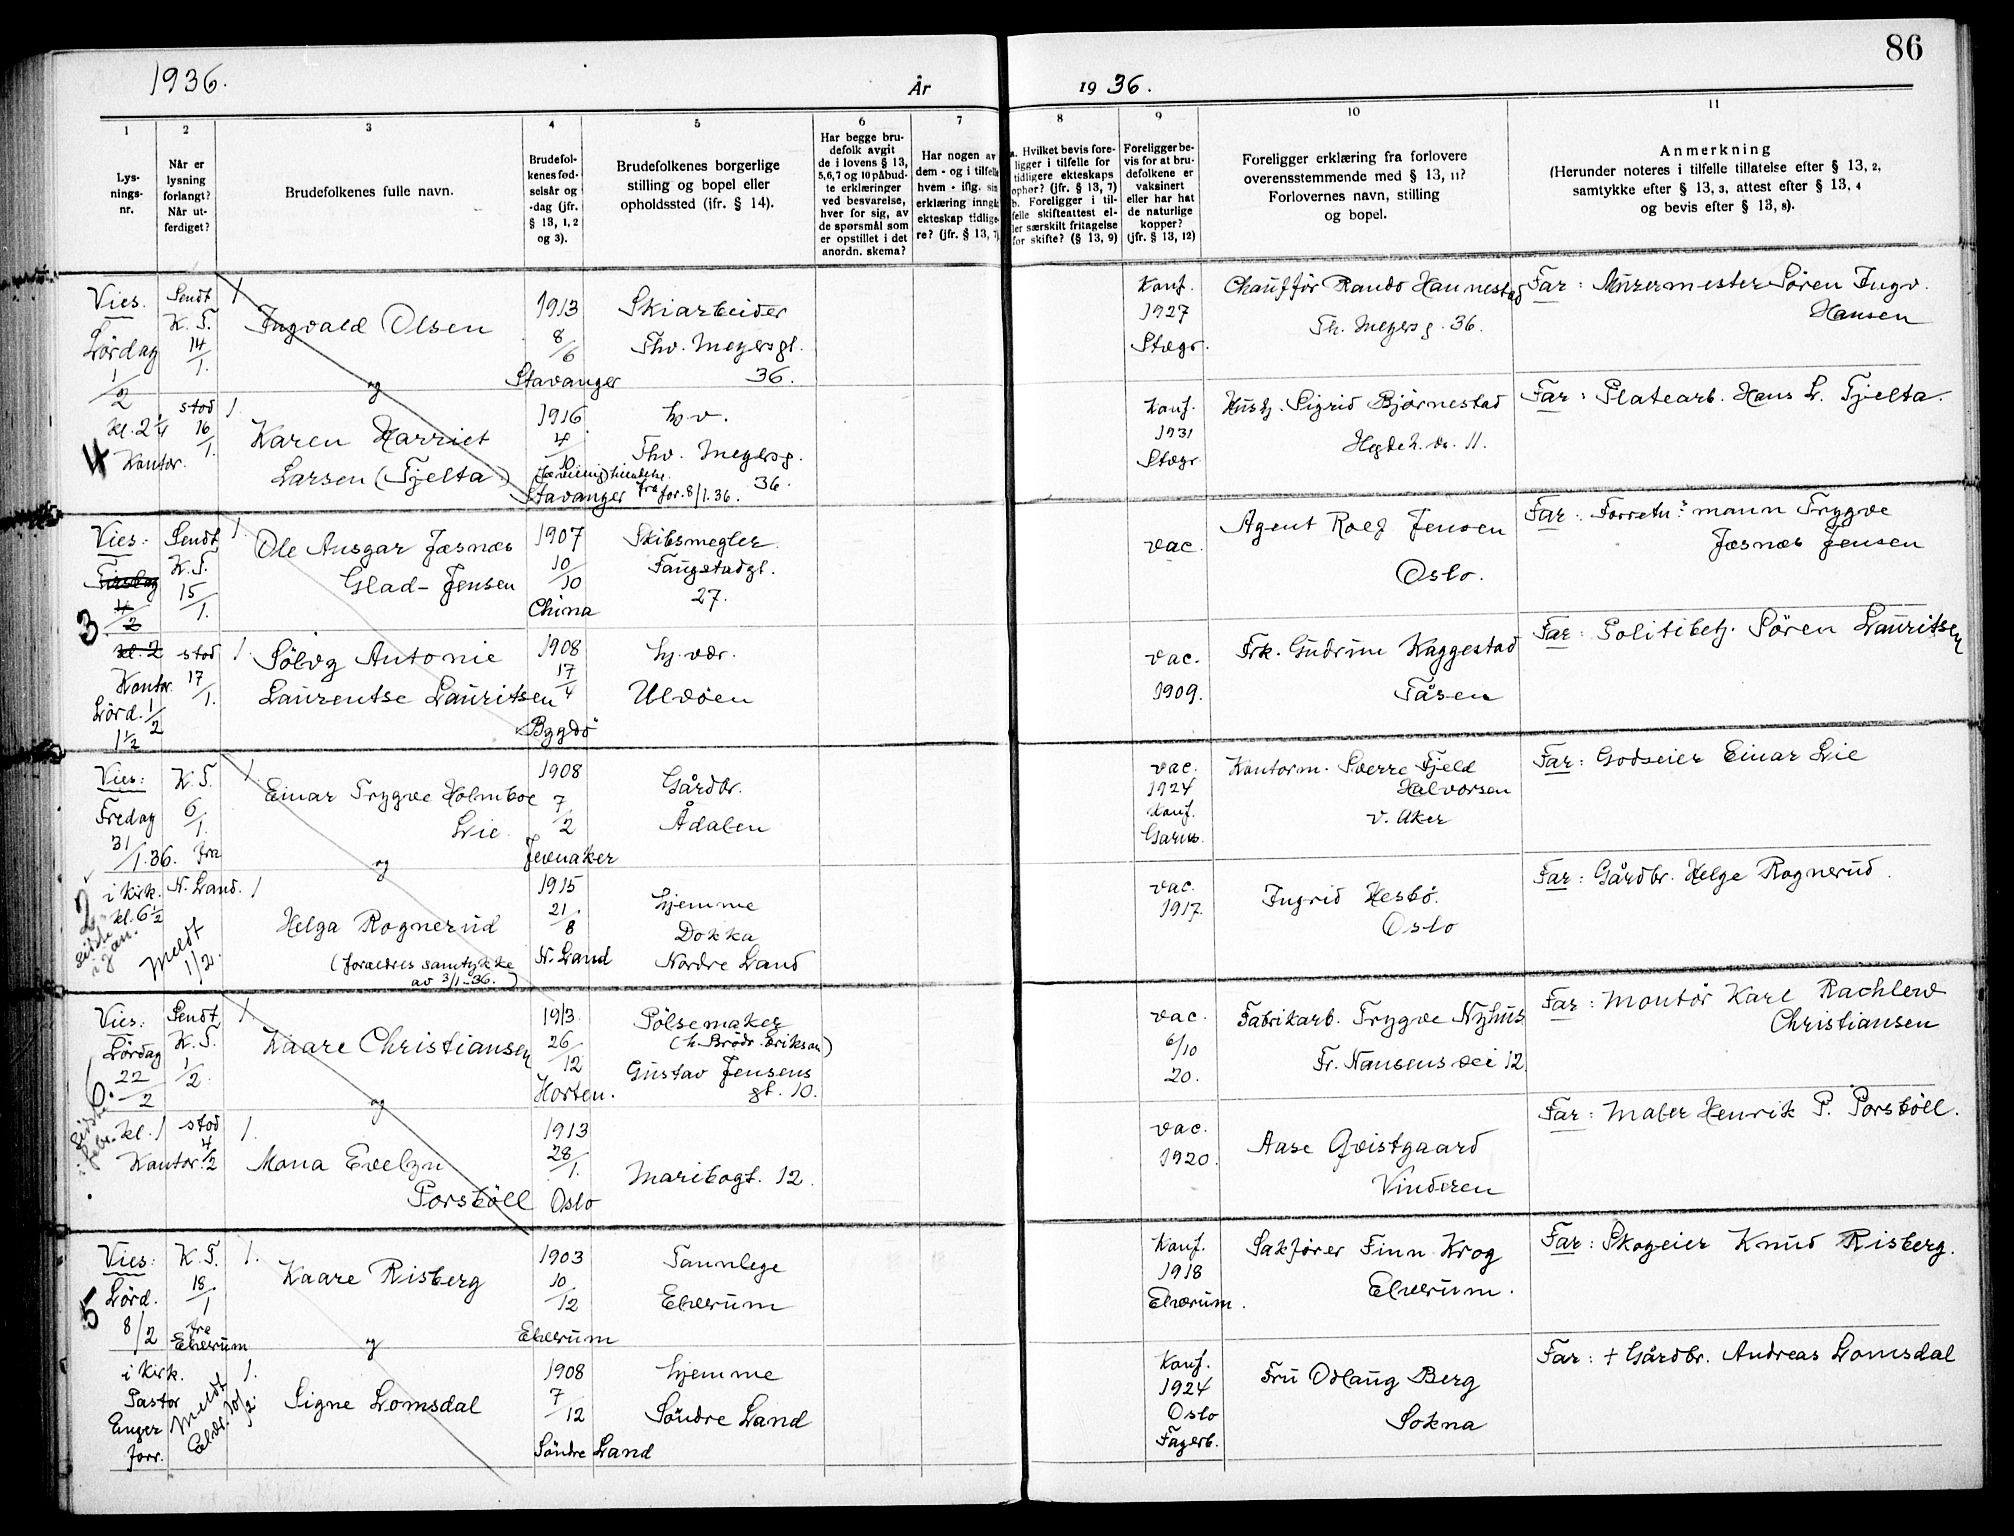 86
1936.
År
19 36.
1
Lys-
nings-
nr.
2
Når er
lysning
forlangt?
Når ut-
ferdiget?
3
Brudefolkenes fulle navn.
4
Brudefol-
kenes fød-
selsår og
-dag (jfr.
§ 13, 1, 2
og 3).
5
Brudefolkenes borgerlige
stilling og bopel eller
opholdssted (jfr. § 14).
6
Har begge bru-
defolk avgit
de i lovens § 13,
5,6,7 og 10 påbud-
te erklæringer
ved besvarelse,
hver for sig, av
de spørsmål som
er opstillet i det
anordn. skema?
7
Har nogen av
dem - og i tilfelle
hvem - iflg. sin
erklæring inngå
ekteskap tidlige-
re? (jfr. § 13, 7)
8
a. Hvilket bevis fore-
ligger i tilfelle for
tidligere ekteskaps
ophør? (jfr. § 13, 7)
b. Foreligger i til-
felle skifteattest el-
ler særskilt fritagelse
for skifte? (§ 13, 9)
9
Foreligger be-
vis for at bru-
defolkene er
vaksinert
eller har hat
de naturlige
kopper?
(jfr. § 13, 12)
10
Foreligger erklæring fra forlovere
overensstemmende med § 13, 11?
Forlovernes navn, stilling
og bopel.
11
Anmerkning
(Herunder noteres i tilfelle tillatelse efter § 13, 2,
samtykke efter § 13, 3, attest efter § 13, 4
og bevis efter § 13, 8).
Vies.
Lördag
1/2
kl. 2 1/4
Kontor.
4
Sendt
K. T.
14/1.
stod
16/1.
1
Ingvald Olsen
og
1913
8/6
Stavanger
Skiarbeider
Thv. Meyersgt.
36.
Konf.
1927
Stvgr.
Chauffør Rando Hannestad
Th. Meyersg. 36.
Far: Murermester Søren Ingv.
Hansen
1.
Karen Harriet
Larsen (Tjelta)
1916
4/10
Stavanger
fra for. 8/1.36.
hv.
Thv. Meyersg.
36.
Konf.
1931
Stvgr
Sigrid Bjørnestad
Hegdeh. v. 11.
Far: Platearb. Hans L. Tjelta.
Vies:
Tirsdag
4/2
kl. 2
Kontor
Lörd. 1/2
1 1/2
3
Sendt
K. T.
15/1.
stod
17/1.
1.
Ole Ansgar Jæsnæs
Glad-Jensen
1907
10/10
China
Skibsmegler
Faugstadgt.
27.
vac.
Agent Rolf Jensen
Oslo.
Far: Forretn.s mann Trygve
Jæsnæs Jensen
1.
Sölvg Antonie
Laurentse Lauritsen
1908
17/4
Bygdö
hj. vær.
Ulvöen
vac.
1909.
Frk. Gudrun Kaggestad
Tåsen
Far: Politibetj. Sören Lauritsen
Vies:
Fredag
31/1.36.
i Kirk.
kl. 6 1/2
2
K. T.
6/1.
fra
N. Land.
Meldt
1/2.
1.
Einar Trygve Holmboe
Lie.
og
1908
7/2
Jevnaker
Gårdbr.
Ådalen
vac.
1924
Konf.
Kontorm. Sverre Fjeld
Halvorsen
V. Aker
Far: Godseier Einar Lie
1
Helga Rognerud
(foreldres samtykke
av 3/1-36.)
1915
21/8
N. Land
hjemme
Dokka
Nordre Land
vac.
1917.
Ingrid Hesbö.
Oslo
Far: Gårdbr. Helge Rognerud.
Vies:
Lördag
22/2
kl. 1
Kontor.
6.
Sendt
K. T.
1/2.
stod
4/2
1.
Kaare Christiansen
og
1913.
26/12
Horten.
Pölsemaker
(h. Brödr. Eriksen)
Gustav Jensens
gt. 10.
vac.
6/10
20.
Fabrikarb. Trygve Nyhus
Fr. Nansens vei 12
Far: Montör Karl Rachlew
Christiansen
1.
Mona Evelyn
Porsböll
1913
28/1.
Oslo
Maribogt. 12.
vac.
1920.
Aase Qvistgaard
Vinderen
Far: Maler Henrik P. Porsböll.
Vies:
Lörd.
8/2
i Kirk.
Pastor
Enger
forr.
5
K. T.
18/1
fra
Elverum
Meldt
Elvr. 10/2
1.
Kaare Risberg
og
1903
10/12
Elverum
Tannlege
Elverum
Konf.
1918
Elverum.
Sakfører Finn Krog
Elverum.
Far: Skogeier Knud Risberg.
1.
Signe Lomsdal
1908
7/12
Söndre Land
hjemme
Söndre Land
Konf.
1924
Oslo
Fagerb.
Fru Odlaug Berg
Sokna
Far: + Gårdbr. Andreas Lomsdal